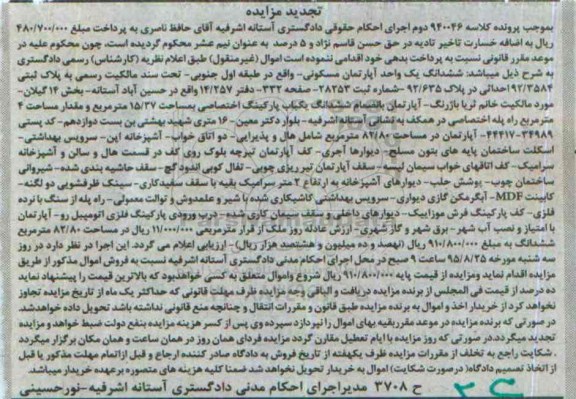 تجدید مزایده
بموجب پرونده کلاسه ۹۴۰۰۴۶ دوم اجرای احکام حقوقی دادگستری آستانه اشرفیه آقای حافظ ناصری به پرداخت مبلغ ۴۸۰/۷۰۰/۰۰۰
ریال به اضافه خسارت تاخیر تادیه در حق حسن قاسم نژاد و ۵ درصد به عنوان نیم عشر محکوم گردیده است، چون محکوم علیه در
موعد مقرر قانونی نسبت به پرداخت بدهی خود اقدامی ننموده است اموال (غیرمنقول) طبق اعلام نظریه (کارشناس) رسمی دادگستری
به شرح ذیل میباشد: ششدانگ یک واحد آپارتمان مسکونی- واقع در طبقه اول جنوبی- تحت سند مالکیت رسمی به پلاک ثبتی
۹۲/۳۵۸۴ احداثی در پلاک ۹۲/۶۳۵- شماره ثبت ۲۸۲۵۳- صفحه ۳۳۲- دفتر ۱۴/۲۵۷ واقع در حسین آباد آستانه- بخش ۱۴ گیلان-
مورد مالکیت خانم ثریا باژرنگ- آپارتمان بانضمام ششدانگ یکباب پارکینگ اختصاصی بمساحت ۱۵/۳۷ مترمربع و مقدار مساحت ۴
مترمربع راه پله اختصاصی در همکف به نشانی آستانه اشرفیه- بلوار دکتر معین- ۱۶ متری شهید بهشتی بن بست دوازدهم- کد پستی
۳۴۹۸۹-۴۴۴۱۷- آپارتمان در مساحت ۸۲/۸۰ مترمربع شامل هال و پذیرایی- دو اتاق خواب- آشپزخانه اپن- سرویس بهداشتی-
اسکلت ساختمان پایه های بتون مسلح- دیوارها آجری- کف آپارتمان تیرچه بلوک روی کف در قسمت هال و سالن و آشپزخانه
سرامیک- کف اتاقهای خواب سیمان لیسه- سقف آپارتمان تیرریزی چوبی- تفال کوبی اندود گچ- سقف حاشیه بندی شده- شیروانی
ساختمان چوب- پوشش حلب- دیوارهای آشپزخانه به ارتفاع ۲ متر سرامیک بقیه با سقف سفیدکاری- سینک ظرفشویی دو لگنه-
کابینت MDF- آبگرمکن گازی دیواری- سرویس بهداشتی کاشیکاری شده با شیر و علمدوش و توالت معمولی- راه پله از سنگ با نرده
فلزی- کف پارکینگ فرش موزاییک- دیوارهای داخلی و سقف سیمان کاری شده- درب ورودی پارکینگ فلزی اتومبیل رو- آپارتمان
با امتیاز و نصب آب شهر- برق شهر و گاز شهری- ارزش عادله روز ملک از قرار مترمربعی ۱۱/۰۰۰/۰۰۰ ریال در مساحت ۸۲/۸۰ مترمربع
ششدانگ به مبلغ ۹۱۰/۸۰۰/۰۰۰ ریال (نهصد و ده میلیون و هشتصد هزار ریال)- ارزیابی اعلام می گردد. این اجرا در نظر دارد در روز
سه شنبه مورخه ۹۵/۸/۲۵ ساعت ۹ صبح در محل اجرای احکام مدنی دادگستری آستانه اشرفیه نسبت به فروش اموال مذکور از طریق
مزایده اقدام نماید ومزایده از قیمت پایه ۹۱۰/۸۰۰/۰۰۰ ریال شروع واموال متعلق به کسی خواهد بود که بالاترین قیمت را پیشنهاد نماید
ده درصد از قیمت فی المجلس از برنده مزایده دریافت و الباقی وجه مزایده ظرف مهلت قانونی که حداکثر یک ماه از تاریخ مزایده تجاوز
نخواهد کرد از خریدار اخذ و اموال به برنده مزایده طبق قانون و مقررات انتقال و چنانچه منع قانونی نداشته باشد تحویل داده خواهد شد.
در صورتی که برنده مزایده در موعد مقرر بقیه بهای اموال را نپردازد سپرده وی پس از کسر هزینه مزایده بنفع دولت ضبط خواهد و مزایده
تجدید میگردد. در صورتی که روز مزایده با ایام تعطیل مقارن گردد مزایده فردای همان روز در همان ساعت و همان مکان برگزار میگردد
، شکایت راجع به تخلف از مقررات مزایده ظرف یکهفته از تاریخ فروش به دادگاه صادر کننده ارجاع و قبل از اتمام مهلت مذکور یا قبل
از اتخاذ تصمیم دادگاه (در صورت شکایت) اموال به خریدار تحویل نخواهد شد ضمنا کلیه هزینه های متصوره برعهده خریدار میباشد.
ح ۳۷۰۸ مدیر اجرای احکام مدنی دادگستری آستانه اشرفیه- نورحسینی